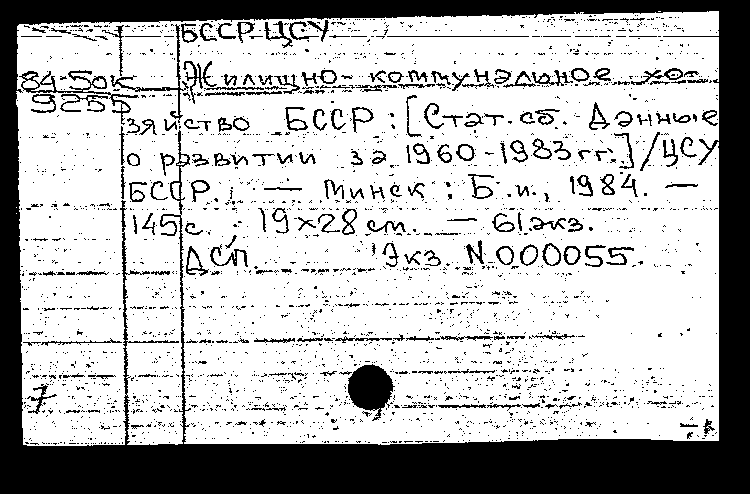 БССР. ЦСУ.
84-5ок
9255
Жилищно-коммунальное хо-
зяйство БССР : [Стат. сб. Данные
о развитии за 1960-1983 гг.] / ЦСУ
БССР. — Минск : Б.и., 1984. —
145 с. ; 19×28 см. — 61 экз.
ДСП. Экз. N 000055.
7